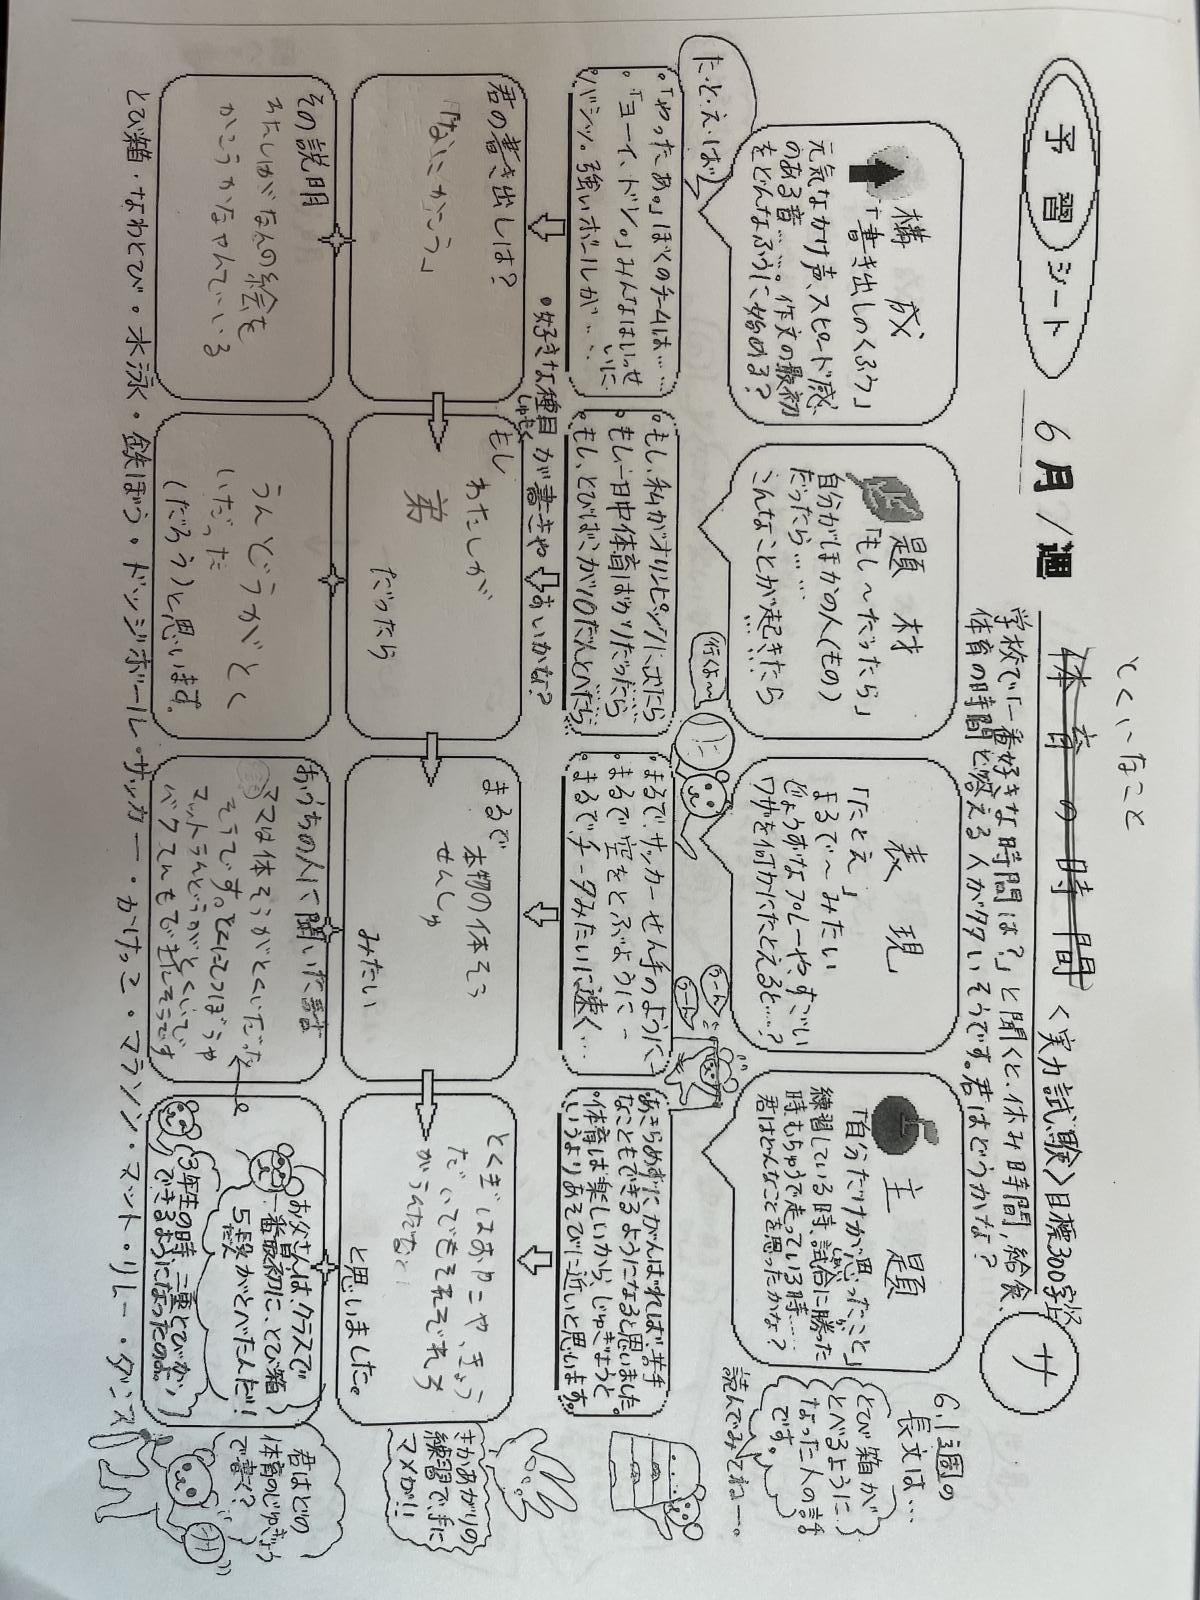 予習シート
6月1週
とくいなこと
体育の時間
<実力試験>目標300字以上
サ
学校で「一番好きな時間は?」と聞くと、休み時間、給食、
体育の時間と答える人がタタいそうです。君はどうかな?
構成
「書き出しのくふう」
元気なかけ声、スピード感
のある音……。作文の最初
をどんなふうに始める?
題材
「もし〜だったら」
自分がほかの人(もの)
だったら……
こんなことが起きたら……
表現
「たとえ」
まるで〜みたい
じょうずなプレーや、すごい
ワザを何かにたとえると……?
主題
「自分だけが思ったこと」
練習している時、試合に勝った
時、もちゅうで走っている時……
君はどんなことを思ったかな?
6.1週の
長文は…
とび箱が
とべるように
なった人の話
です。
読んでみてねー。
た・と・え・ば
・「やったあ。」ぼくのチームは……
・「ヨーイ、ドン。」みんなはいっせいに
・バシッ。強いボールが……
・もし、私がオリンピックに出たら
・もし一日中体育ばかりだったら
・もし、とびばこが10だんとべたら
行くよ〜
・まるでサッカーせん手のように-
・まるで空をとぶように-
・まるでチータみたいに速く…
うーん
うーん
・あきらめずにがんばれば、苦手
なこともできるようになると思いました。
・体育は楽しいから、じゅぎょうと
いうよりあそびに近いと思います。
・好きな種目が書きやすいかな?
しゅもく
君の書き出しは?
「なにかこう」
もし
わたしが
弟
だったら
まるで
本物の体そう
せんしゅ
みたい
とくぎはおやこや、きょう
だいでもそれぞれち
がうんだな
と思いました。
きかあがりの
練習で手に
マメが!!
その説明
わたしがなんの絵を
かこうかなやんでいる
うんどうがとく
いだった
(だろう)と思います。
おうちの人に聞いた話
ママは体そうがとくいだった
そうです。とくにてつぼうや
マットうんどうがとくいで
バクてんもできたそうです
お父さんは、クラスで
一番最初に、とび箱
5段がとべたんだ!
だん
3年生の時、二重とびが
できるようになったのよ。
君はどの
体育のじゅぎょう
で書く?
とび箱・なわとび・水泳・鉄ぼう・ドッジボール・サッカー・かけっこ・マラソン・マット・リレー・ダンス